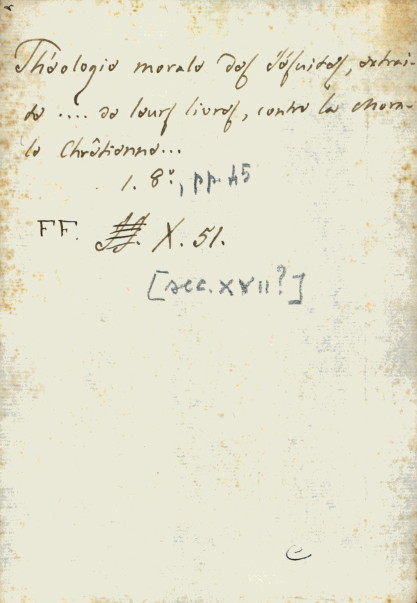 Théologie morale des Jésuites, extrai-
te .... de leurs livres, contre la mora-
le Chrêtienne...
1. 8º., pp. 45
FF. X. 51.
[sec. XVII?]